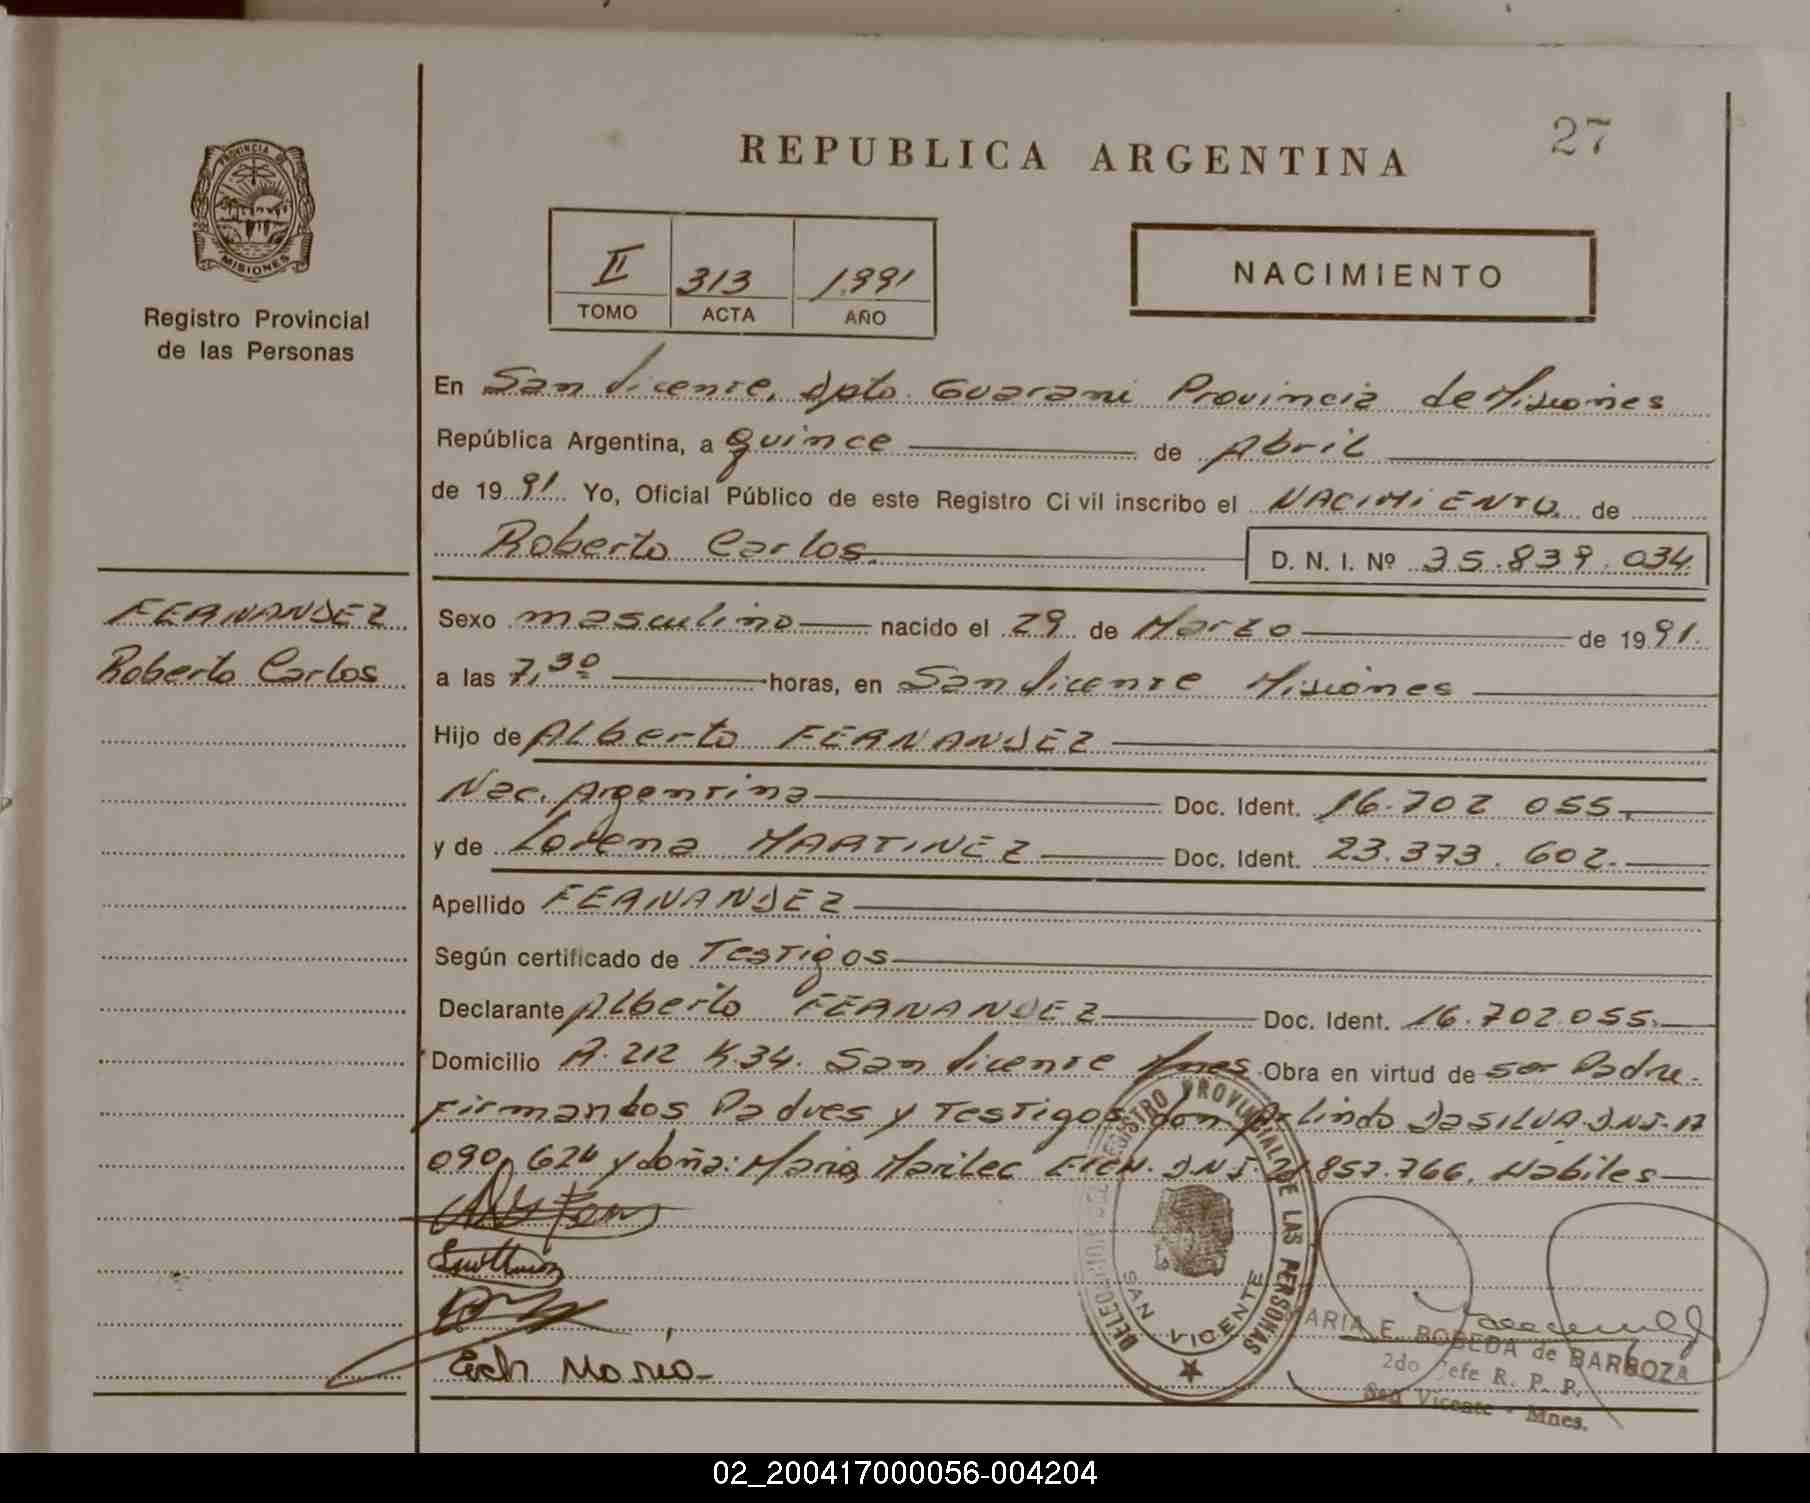 27
REPUBLICA ARGENTINA
PROVINCIA DE
MISIONES
Registro Provincial
de las Personas
II 313 1.991
TOMO ACTA AÑO
NACIMIENTO
En San Vicente, Dpto. Guarani Provincia de Misiones
República Argentina, a quince de Abril
de 1991. Yo, Oficial Público de este Registro Civil inscribo el NACIMIENTO de
Roberto Carlos. D. N. I. Nº 35.839.034
FERNANDEZ
Roberto Carlos
Sexo masculino nacido el 29 de Marzo de 1991.
a las 7,30 horas, en San Vicente Misiones
Hijo de Alberto FERNANDEZ
Nac. Argentina Doc. Ident. 16.702 055.
y de Lorena MARTINEZ Doc. Ident. 23.373.602.
Apellido FERNANDEZ
Según certificado de Testigos
Declarante Alberto FERNANDEZ Doc. Ident. 16.702.055.
Domicilio A. 212 K.34. San Vicente Mnes. Obra en virtud de ser Padre.
Firmantos Padres y Testigos, don Arlindo DaSILVA. D.N.I. 17
090.624 y doña: Maria Marilec D.N.I. 857.766. Habiles
DELEGACION DEL REGISTRO PROVINCIAL DE LAS PERSONAS
SAN VICENTE
Maria
ARIA E. BOBEDA de BARBOZA
2do Jefe R. P. P.
San Vicente - Mnes.
02_200417000056-004204